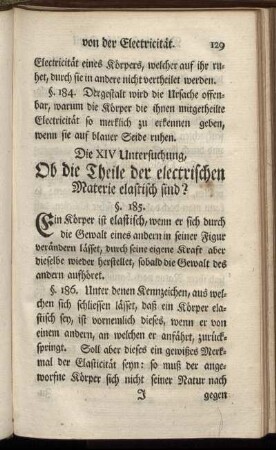 von der Electricität. 129
Electricität eines Körpers, welcher auf ihr ru-
het, durch sie in andere nicht vertheilet werden.
§. 184. Dergestalt wird die Ursache offen-
bar, warum die Körper die ihnen mitgetheilte
Electricität so merklich zu erkennen geben,
wenn sie auf blauer Seide ruhen.
Die XIV Untersuchung,
Ob die Theile der electrischen
Materie elastisch sind?
§. 185.
Ein Körper ist elastisch, wenn er sich durch
die Gewalt eines andern in seiner Figur
verändern lässet, durch seine eigene Kraft aber
dieselbe wieder herstellet, sobald die Gewalt des
andern aufhöret.
§. 186. Unter denen Kennzeichen, aus wel-
chen sich schliessen lässet, daß ein Körper ela-
stisch sey, ist vornemlich dieses, wenn er von
einem andern, an welchen er anfährt, zurück-
springt. Soll aber dieses ein gewisses Merk-
mal der Elasticität seyn: so muß der ange-
worfne Körper sich nicht seiner Natur nach
J gegen